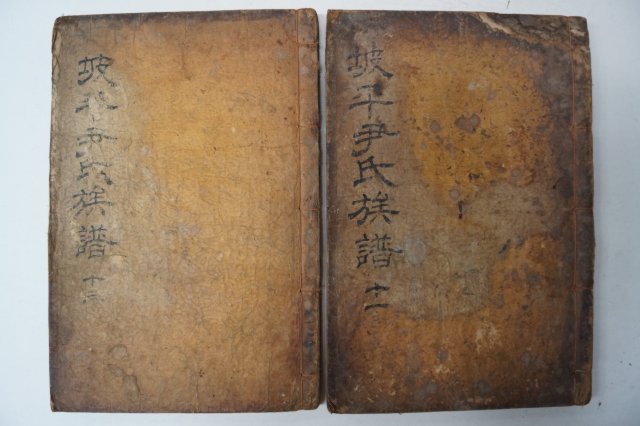 坡平尹氏族譜 十一
坡平尹氏族譜 十三